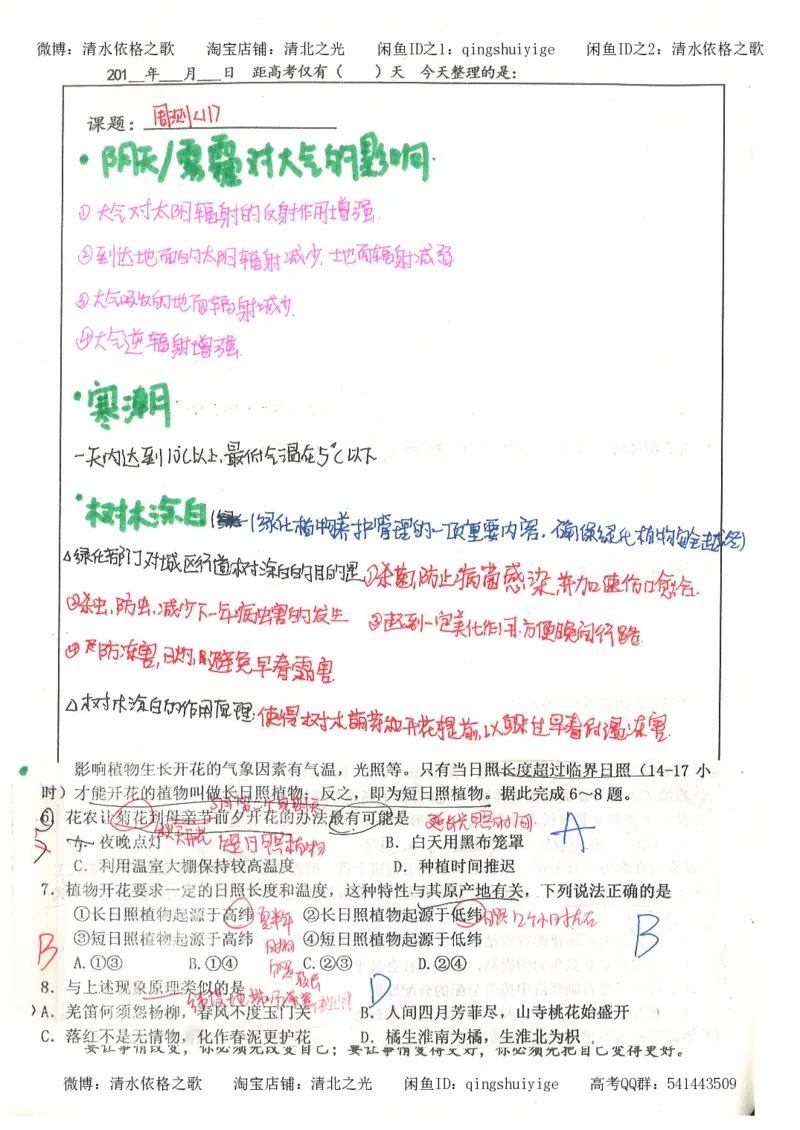 微博：清水依格之歌 淘宝店铺：清北之光 闲鱼ID之1：qingshuiyige 闲鱼ID之2：清水依格之歌
201__年___月___日 距高考仅有（ ）天 今天整理的是：
课题：周测<117
·阴天/雾霾对大气的影响·
①大气对太阳辐射的反射作用增强.
②到达地面的太阳辐射减少,地面辐射减弱
③大气吸收的地面辐射减少.
④大气逆辐射增强.
·寒潮
一天内达到10℃以上,最低气温在5℃以下
·树木涂白(绿化植物养护管理的一项重要内容,确保绿化植物安全越冬)
△绿化部门对城区行道树涂白的目的是①杀菌,防止病菌感染,并加速伤口愈合.
②杀虫,防虫,减少下一年病虫害的发生 ③起到一定美化作用.方便晚间行路.
④防冻害,日灼,避免早春霜害.
△树木涂白的作用原理:使得树木萌芽和开花提前,以躲过早春低温冻害.
影响植物生长开花的气象因素有气温，光照等。只有当日照长度超过临界日照（14-17 小
时）才能开花的植物叫做长日照植物；反之，即为短日照植物。据此完成6～8题。
5月第二个星期天
6. 花农让菊花到母亲节前夕开花的办法最有可能是 延长光照时间 A
秋天开花 短日照植物
A. 夜晚点灯 B. 白天用黑布笼罩
C. 利用温室大棚保持较高温度 D. 种植时间推迟
7. 植物开花要求一定的日照长度和温度，这种特性与其原产地有关，下列说法正确的是
①长日照植物起源于高纬 夏半年 ②长日照植物起源于低纬 日照12个小时左右
③短日照植物起源于高纬 ④短日照植物起源于低纬 B
A.①③ B.①④ C.②③ D.②④
8. 与上述现象原理类似的是 D
A. 羌笛何须怨杨柳，春风不度玉门关 B. 人间四月芳菲尽，山寺桃花始盛开
C. 落红不是无情物，化作春泥更护花 D. 橘生淮南为橘，生淮北为枳
要让事情改变，你必须先改变自己；要让事情变得更好，你必须先把自己变得更好。
微博：清水依格之歌 淘宝店铺：清北之光 闲鱼ID：qingshuiyige 高考QQ群：541443509